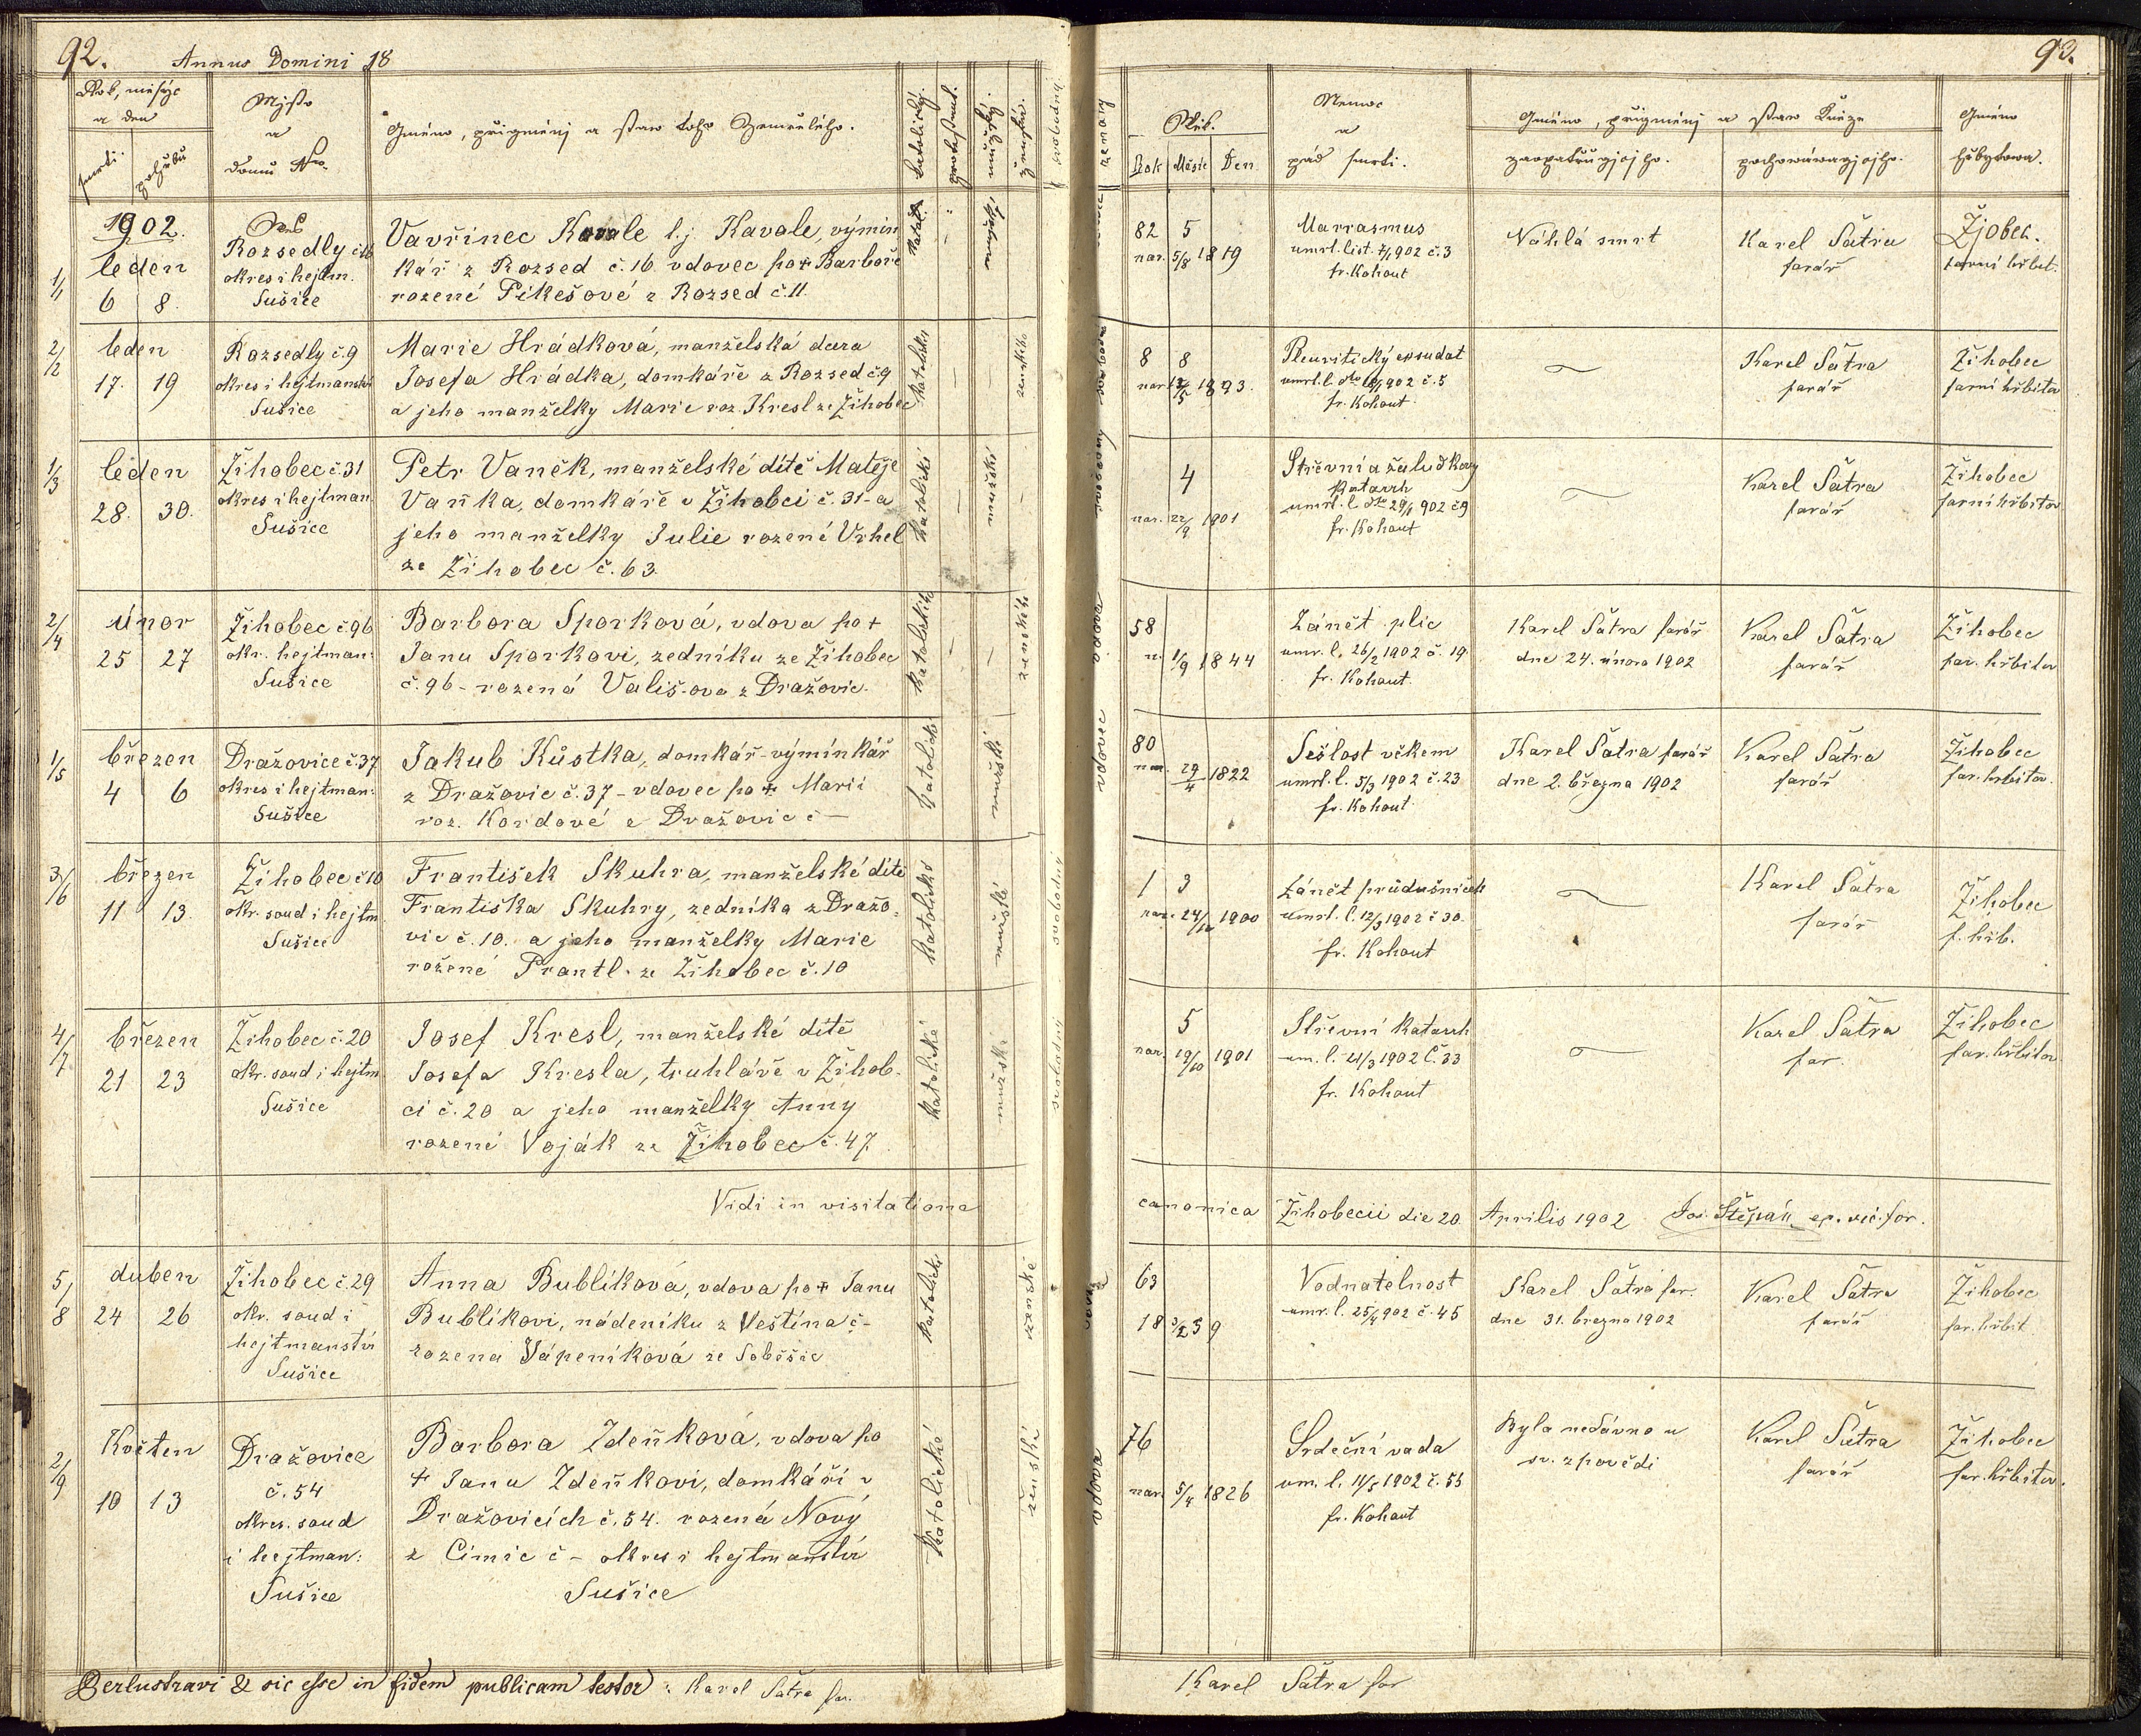 92.
Annus Domini 18
Rok, měsýc
a den
smrti.
pohřbu
Mjsto
a
domu Nro.
Gméno, přigménj a staw toho Zemřelého.
katolický.
protestant.
mužský.
ženský.
svobodný
1/1
1902.
leden
6 8.
Ves
Rozsedly č 16
okres i hejtm.
Sušice
Vavřinec Kavale l.j Kavale, výmin
kář z Rozsed č. 16. vdovec po + Barboře
rozené Pikešové z Rozsed č. 11.
2/2
leden
17. 19
Rozsedly č. 9
okres i hejtmanství
Sušice
Marie Hrádková, manželská dcera
Josefa Hrádka, domkáře z Rozsed č 9
a jeho manželky Marie roz. Kresl ze Žihobec
katolická
ženského
1/3
leden
28. 30.
Žihobec č. 31
okres i hejtman
Sušice
Petr Vaněk, manželské dítě Matěje
Vaňka, domkáře v Žihobci č. 31 - a
jeho manželky Julie rozené Vrhel
ze Žihobec č. 63.
katolické
2/4
únor
25 27
Žihobec č. 96
okr. hejtman:
Sušice
Barbora Sporková, vdova po +
Janu Sporkovi, zedníku ze Žihobec
č. 96 - rozená Vališ-ova z Dražovic.
1/5
březen
4 6
Dražovice č. 37
okres i hejtman:
Sušice
Jakub Kůstka, domkář-výminkář
z Dražovic č. 37 - vdovec po + Marii
roz. Kordové z Dražovic č -
3/6
březen
11 13.
Žihobec č 10
okr. soud i hejtm
Sušice
František Skuhra, manželské dítě
Františka Skuhry, zedníka z Dražo-
vic č. 10. a jeho manželky Marie
rožené Prantl. ze Žihobec č. 10
katolické
mužské
svobodný
4/7
březen
21 23
Žihobec č. 20
okr. soud i hejtm
Sušice
Josef Kresl, manželské dítě
Josefa Kresla, truhláře v Žihob-
ci č. 20 a jeho manželky Anny
rozené Voják ze Žihobec č. 47
katolické
mužské
svobodný
Vidi in visitationa
5/8
duben
24 26
Žihobec č. 29
okr. soud i
hejtmanství
Sušice
Anna Bublíková, vdova po + Janu
Bublíkovi, nádeníku z Veštína č -
rozena Vápeníková ze Soběšic
katolické
ženské
2/9
Květen
10 13
Dražovice
č. 54
okres. soud
i hejtman:
Sušice
Barbora Zdeňková, vdova po
+ Janu Zdeňkovi, domkáři v
Dražovicích č. 54. rozená Nový
z Čimic č - okres i hejtmanství
Sušice
Katolické
ženské
Perlustravi & sic esse in fidem publicam testor: Karel Šatra far.
93.
ženatý
Věk.
Rok Měsíc Den
Nemoc
a
pád smrti.
Gméno, přigménj a staw Kněze
zaopatřugjcjho.
pochowáwagjcjho.
Gméno
hřbytowa.
82 5
nar. 5/8 1819
Marrasmus
umrt. list. 7/1 902 č. 3
fr. Kohout
Náhlá smrt
Karel Šatra
farář
Žjobec.
farní hřbit.
8 8
nar 13/5 1893.
Pleuritický exsudat
umrt. l. dto 18/1 902 č. 5
fr. Kohout
Karel Šatra
farář
Žihobec
farní hřbitov
4
nar. 22/9 1901
Střevní a žaludkový
Katarrh
umrt. l. dto 29/1 902 č 9
fr. Kohout
Karel Šatra
farář
Žihobec
farní hřbitov
vdova
58
n. 1/9 1844
Zánět plic
umr. l. 26/2 1902 č. 19
fr. Kohout.
Karel Šatra farář
dne 24. února 1902
Karel Šatra
farář
Žihobec
far. hřbitov
vdovec
80
nar. 29/4 1822
Sešlost věkem
umrt. l. 5/3 1902 č. 23
fr. Kohout
Karel Šatra farář
dne 2. března 1902
Karel Šatra
farář
Žihobec
far. hřbitov.
1 3
nar. 24/12 1900
Zánět průdušnicek
umrt. l. 12/3 1902 č 30.
fr. Kohout
Karel Šatra
farář
Žihobec
f. hřb.
5
nar. 19/10 1901
Střevní Katarrh
um. l. 21/3 1902 č. 33
fr. Kohout
Karel Šatra
far.
Žihobec
far. hřbitov
canonica Žihobecii die 20 Aprilis 1902 Jos. Štěpán ep. vic. for.
63
18 3/2 39
Vodnatelnost
umr. l. 25/4 902 č. 45
Karel Šatra far.
dne 31. března 1902
Karel Šatra
farář
Žihobec
far. hřbit
vdova
76
nar. 5/4 1826
Srdeční vada
um. l. 11/5 1902 č. 55
fr. Kohout
Byla nedávno u
sv. zpovědi
Karel Šatra
farář
Žihobec
far. hřbitov.
Karel Šatra far